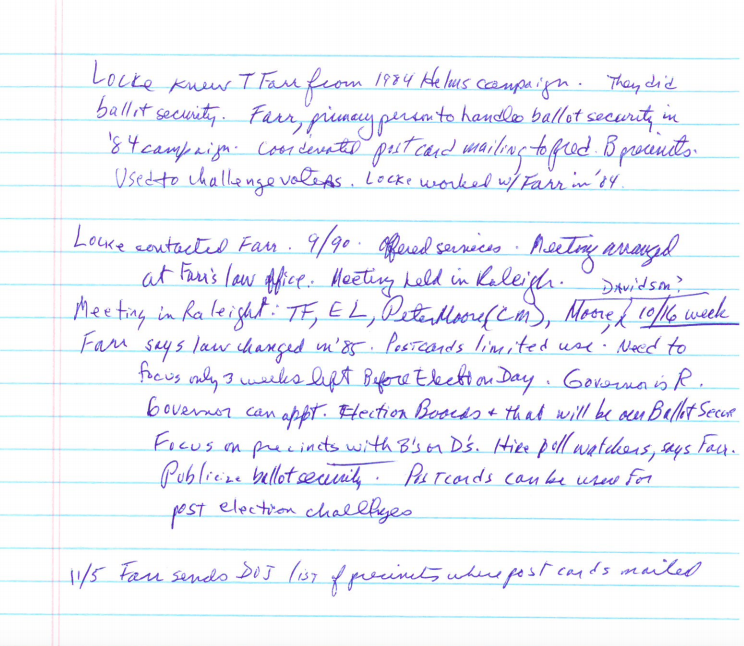 Locke knew T Farr from 1984 Helms campaign. They did
ballot security. Farr, primary person to handle ballot security in
'84 campaign. Coordinated post card mailing to pred. B precincts.
Used to challenge voters. Locke worked w/ Farr in '84.
Locke contacted Farr. 9/90. Offered services. Meeting arranged
at Farr's law office. Meeting held in Raleigh. Davidson?
Meeting in Raleigh: TF, EL, Peter Moore (CM), Moore, 10/16 week
Farr says law changed in '85. Postcards limited use. Need to
focus only 3 weeks left Before Election Day. Governor is R.
Governor can appt. Election Boards + that will be our Ballot Secur
Focus on precincts with B's or D's. Hire poll watchers, says Farr.
Publicize ballot security. Postcards can be used for
post election challenges
11/5 Farr sends DOJ list of precincts where post cards mailed